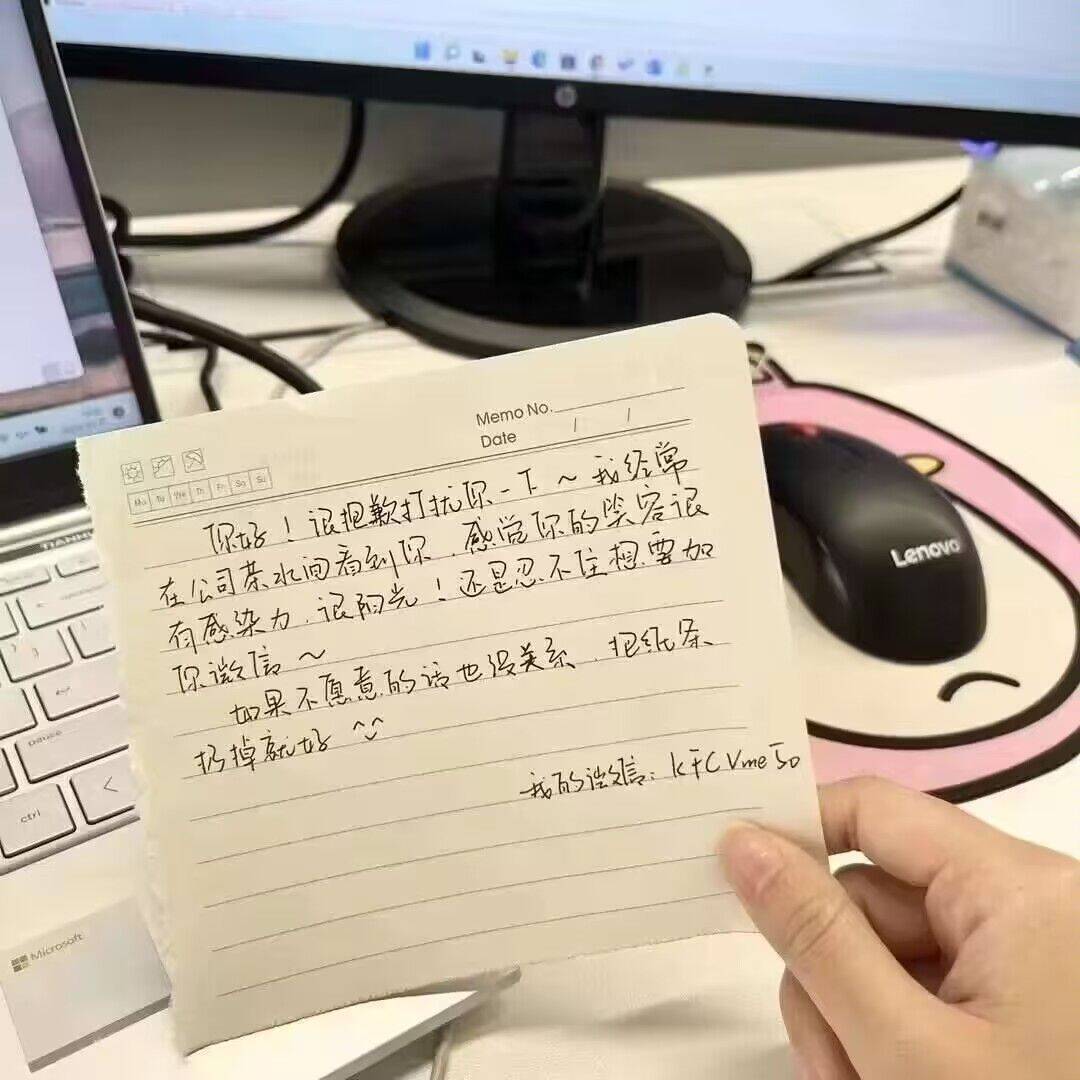 Memo No.
Date / /
Mo Tu We Th Fr Sa Su
你好！很抱歉打扰你一下～我经常
在公司茶水间看到你，感觉你的笑容很
有感染力，很阳光！还是忍不住想要加
你微信～
如果不愿意的话也没关系，把纸条
扔掉就好 ^‿^
我的微信：KFCVme50
Lenovo
Microsoft
pause
ctrl
hp